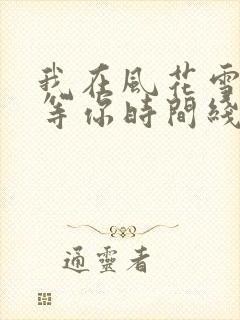 我在風花雪
等你時間綫
通靈者